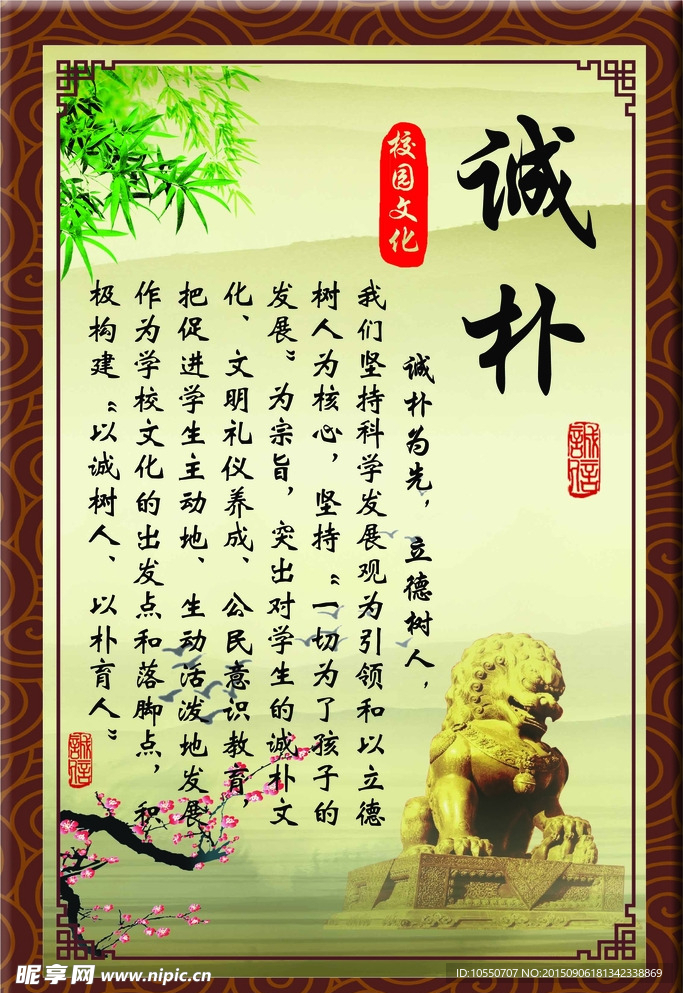 诚朴
校园文化
诚信
诚朴为先，立德树人，
我们坚持科学发展观为引领和以立德
树人为核心，坚持“一切为了孩子的
发展”为宗旨，突出对学生的诚朴文
化、文明礼仪养成、公民意识教育，
把促进学生主动地、生动活泼地发展
作为学校文化的出发点和落脚点，积
极构建“以诚树人、以朴育人”
誠信
昵享网 www.nipic.cn
ID:10550707 NO:20150906181342338869